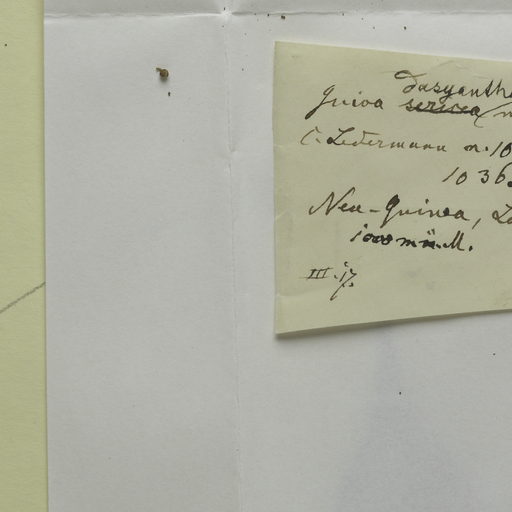 dasyantha
Guioa sericea
C. Ledermann n. 10
1036
Neu-Guinea, Lo
1000 m ü. M.
III. 17.